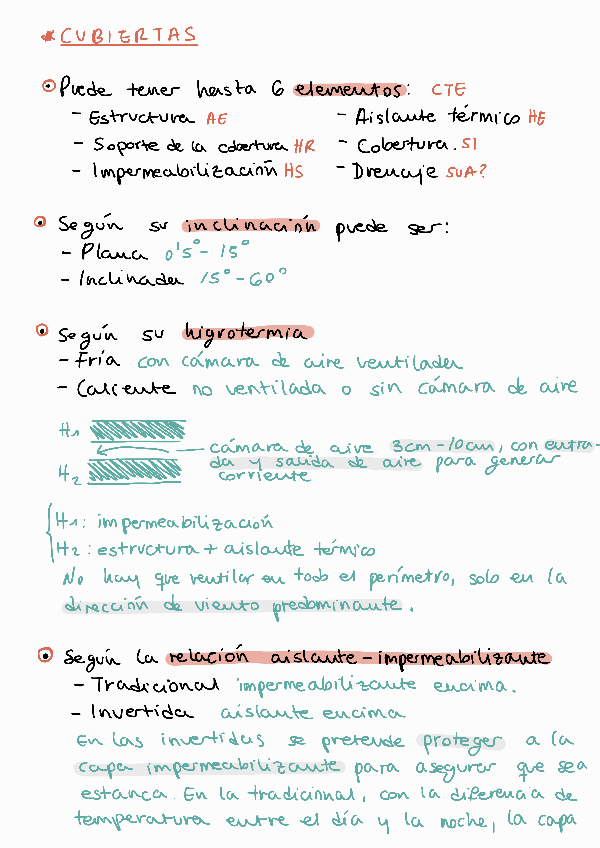 * CUBIERTAS
Puede tener hasta 6 elementos: CTE
- Estructura AE
- Aislante térmico HE
- Soporte de la cobertura HR
- Cobertura. SI
- Impermeabilización HS
- Drenaje SUA?
Según su inclinación puede ser:
- Plana 0'5° - 15°
- Inclinada 15° - 60°
Según su higrotermia
- Fría con cámara de aire ventilada
- Caliente no ventilada o sin cámara de aire
H1
cámara de aire 3cm-10cm, con entra-
H2
da y salida de aire para generar
corriente
H1: impermeabilización
H2: estructura + aislante térmico
No hay que ventilar en todo el perímetro, solo en la
dirección de viento predominante.
Según la relación aislante - impermeabilizante
- Tradicional impermeabilizante encima.
- Invertida aislante encima
En las invertidas se pretende proteger a la
capa impermeabilizante para asegurar que sea
estanca. En la tradicional, con la diferencia de
temperatura entre el día y la noche, la capa